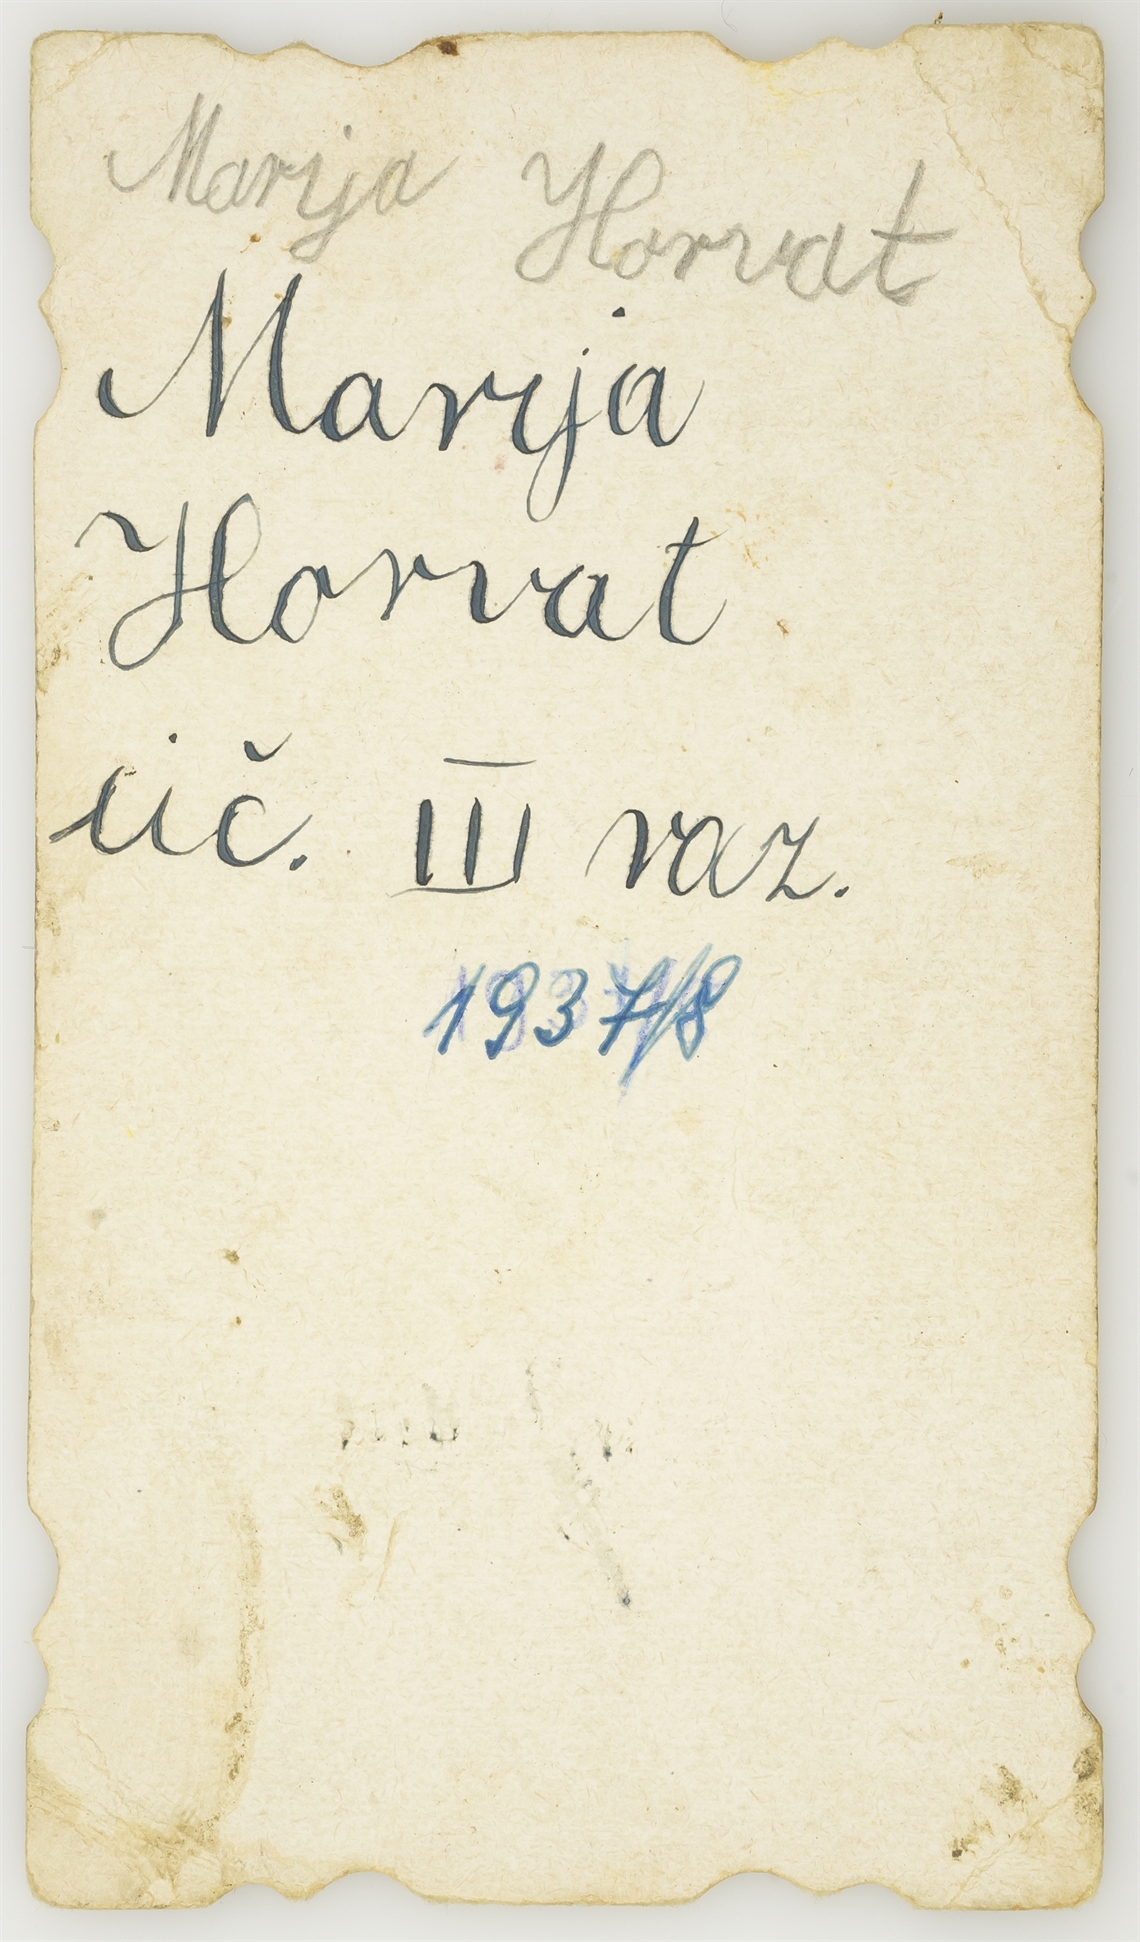 Marija Horvat
Marija
Horvat
uč. III raz.
1937/8